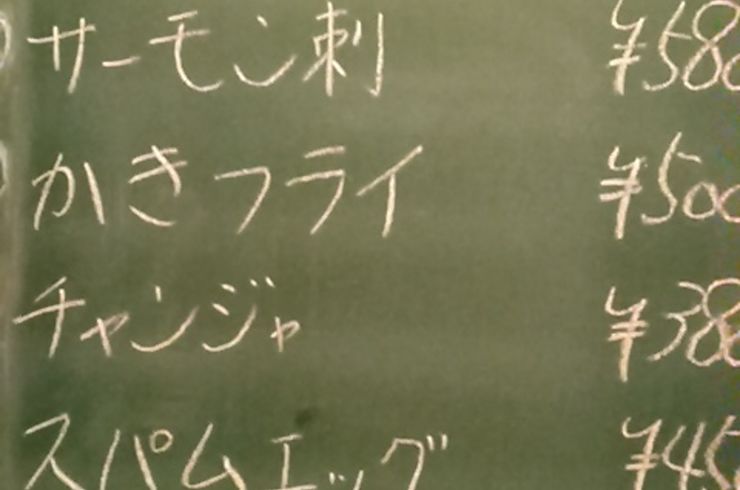 サーモン刺 ¥580
かきフライ ¥500
チャンジャ ¥38
スパムエッグ ¥45